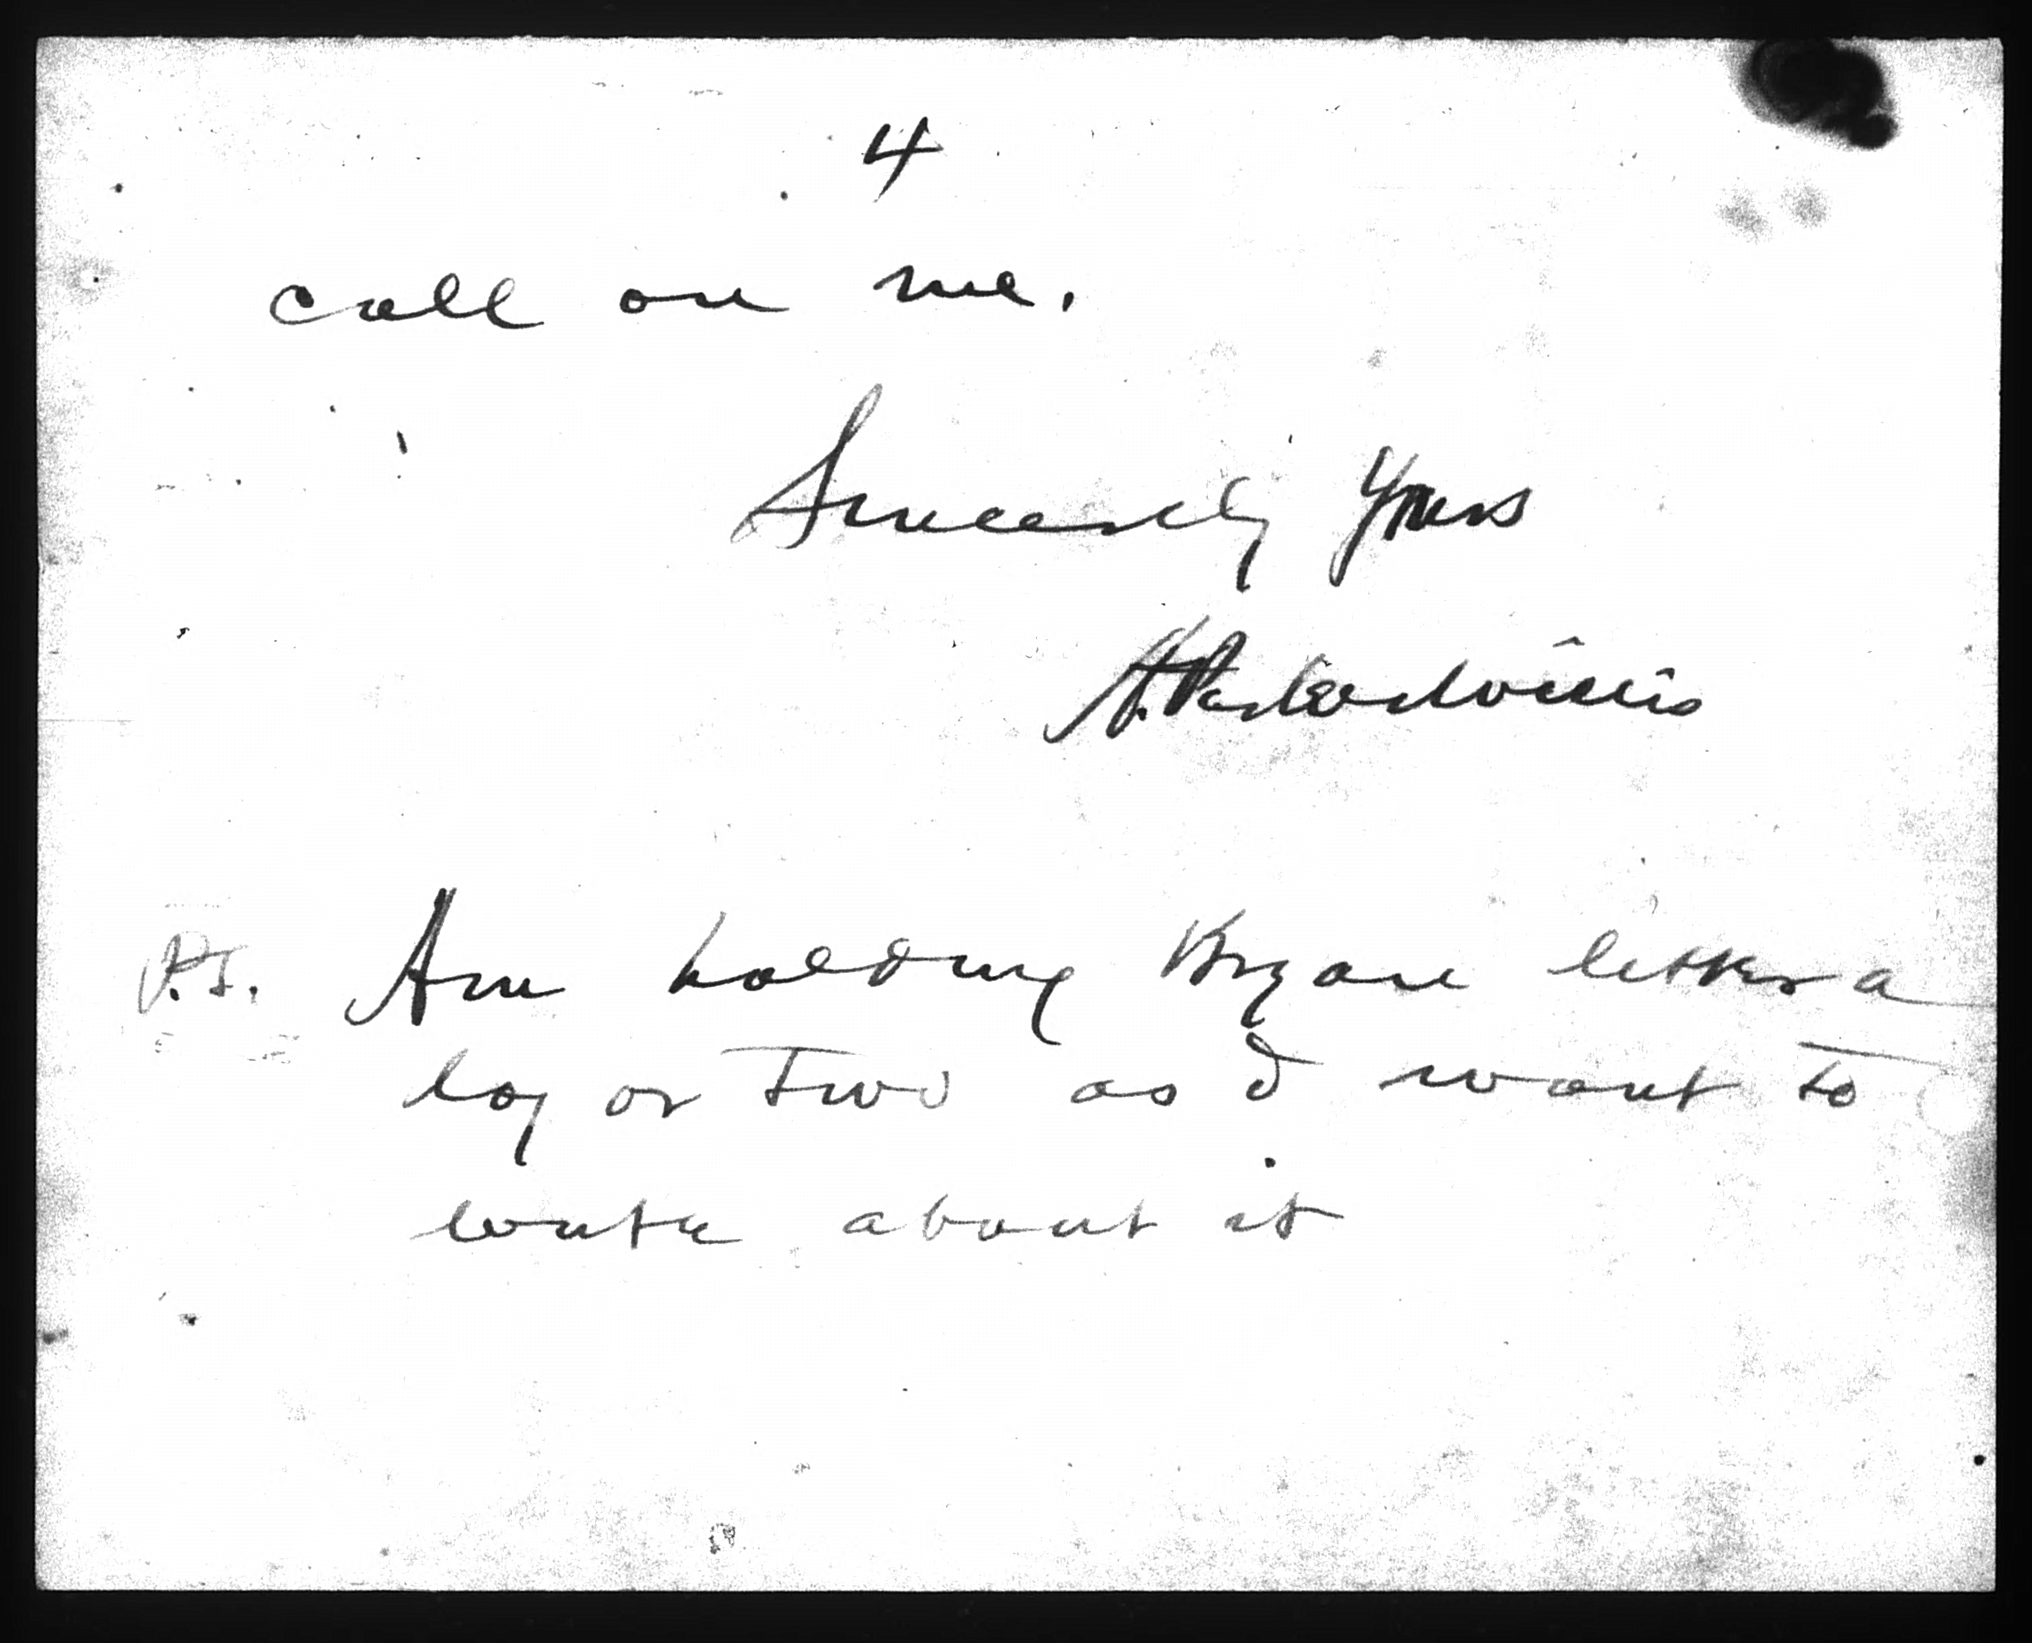 4
call on me.
Sincerely Yours
H. Parker Willis
P.S. Am holding Bryan letter a
day or two as I want to
write about it